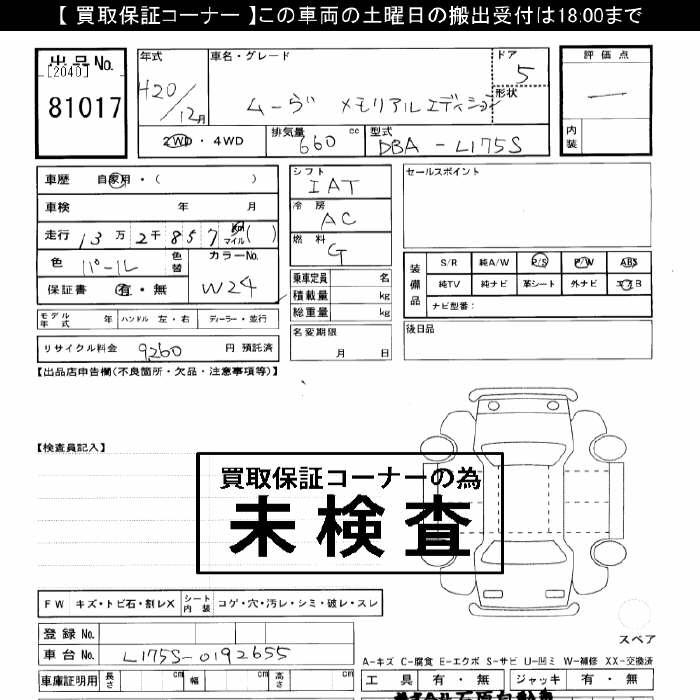 【 買取保証コーナー 】この車両の土曜日の搬出受付は18:00まで
出品No.
[2040]
81017
年式
H20/12月
車名・グレード
ムーヴ メモリアルエディション
ドア
5
形状
評価点
内装
2WD・4WD
排気量
660 cc
型式
DBA - L175S
車歴 自家用・( )
車検 年 月
走行 13万2千857 km マイル ( )
色 パール
色替
カラーNo.
W24
保証書 有・無
モデル年式 年 ハンドル 左・右 ディーラー・並行
リサイクル料金 9260 円 預託済
シフト
IAT
冷房
AC
燃料
G
乗車定員 名
積載量 kg
総重量 kg
名変期限
月 日
セールスポイント
装備品
S/R 純A/W P/S P/W ABS
純TV 純ナビ 革シート 外ナビ エアB
ナビ型番:
後日品
【出品店申告欄(不良箇所・欠品・注意事項等)】
【検査員記入】
買取保証コーナーの為
未検査
FW キズ・トビ石・割レX シート内装 コゲ・穴・汚レ・シミ・破レ・スレ
スペア
登録No.
車台No. L175S-0192655
車庫証明用 長さ cm 幅 cm 高さ cm
A-キズ C-腐食 E-エクボ S-サビ U-凹ミ W-補修 XX-交換済
工具 有・無 ジャッキ 有・無